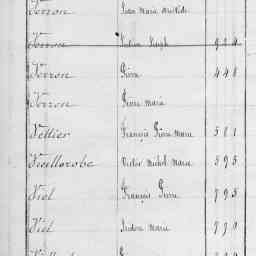 Terron Jean Marie Aristide
Terron Julien Joseph
Terron Pierre 448
Terron Pierre Marie
Vettier François Pierre Marie 581
Vieillerobe Victor Michel Marie 595
Viel François Pierre 795
Viel Isidore Marie 770